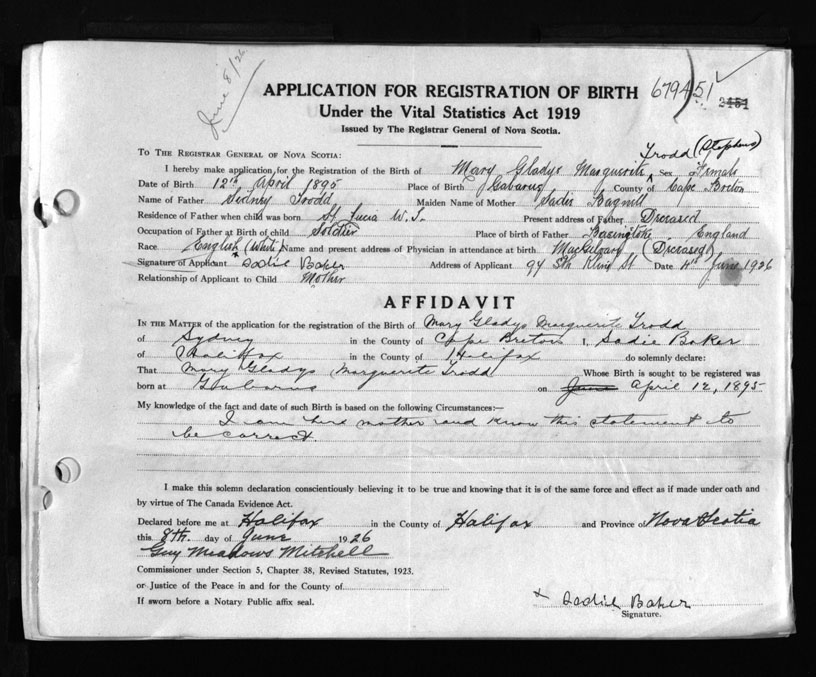 June 8/26
APPLICATION FOR REGISTRATION OF BIRTH 679451 2151
Under the Vital Statistics Act 1919
Issued by The Registrar General of Nova Scotia.
Trodd (Stephens)
TO THE REGISTRAR GENERAL OF NOVA SCOTIA:
I hereby make application for the Registration of the Birth of Mary Gladys Marguerite Sex Female
Date of Birth 12th April 1895 Place of Birth Gabarus County of Cape Breton
Name of Father Sidney Trodd Maiden Name of Mother Sadie Bagnell
Residence of Father when child was born St Lucia W.I. Present address of Father Deceased
Occupation of Father at Birth of child Soldier Place of birth of Father England
Race English (White) Name and present address of Physician in attendance at birth (Deceased)
Signature of Applicant Sadie Baker Address of Applicant 94 St Date 4th June 1926
Relationship of Applicant to Child Mother
AFFIDAVIT
IN THE MATTER of the application for the registration of the Birth of Mary Gladys Marguerite Trodd
of Sydney in the County of Cape Breton I, Sadie Baker
of Halifax in the County of Halifax do solemnly declare:
That Mary Gladys Marguerite Trodd Whose Birth is sought to be registered was
born at Gabarus on June April 12, 1895
My knowledge of the fact and date of such Birth is based on the following Circumstances:—
I am her mother and know this statement to
be correct.
I make this solemn declaration conscientiously believing it to be true and knowing that it is of the same force and effect as if made under oath and
by virtue of The Canada Evidence Act.
Declared before me at Halifax in the County of Halifax and Province of Nova Scotia
this 8th. day of June 1926
Guy Meadows Mitchell
Commissioner under Section 5, Chapter 38, Revised Statutes, 1923.
or Justice of the Peace in and for the County of
If sworn before a Notary Public affix seal.
x Sadie Baker
Signature.